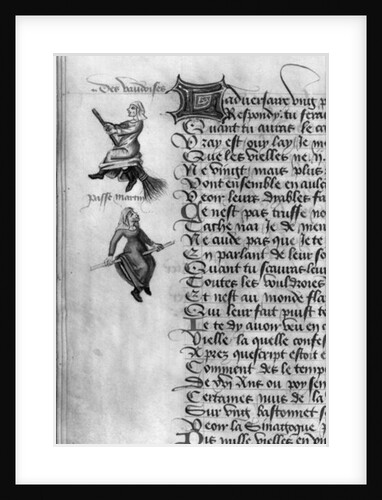 Des vaudoises
passe martin
L adversaire ving p
Respondy tu seras
Quant tu auras le ca
Vray est ouy lay Je m
Que les vielles ne
Ne vingt mais plus
Vont ensemble en
Veoir leurs dyables fa
Ce nest pas truffe
Cathe nai Je de men
Ne aude pas que Je te
En parlant de leur so
Quant tu scauras leur
Toutes les vouldroies
Et nest au monde fla
Qui leur fait puist
Je te dy avoir veu en
Vielle la quelle confes
Apres quescript estoit e
Comment des le temps
De Ans ou poy sen
Certaines nuis de la
Sur ving bastonnet s
Veoir la Sinattogue
Dix mille vielles en